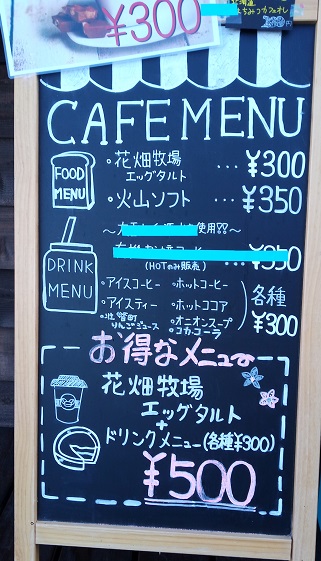 ¥300
CAFE MENU
FOOD MENU
・花畑牧場 エッグタルト … ¥300
・火山ソフト … ¥350
使用!!〜
¥350
(HOTのみ販売)
DRINK MENU
・アイスコーヒー ・ホットコーヒー
・アイスティー ・ホットココア
りんごジュース ・オニオンスープ
・コカコーラ
各種 ¥300
お得なメニュー
花畑牧場
エッグタルト
+
ドリンクメニュー(各種¥300)
¥500